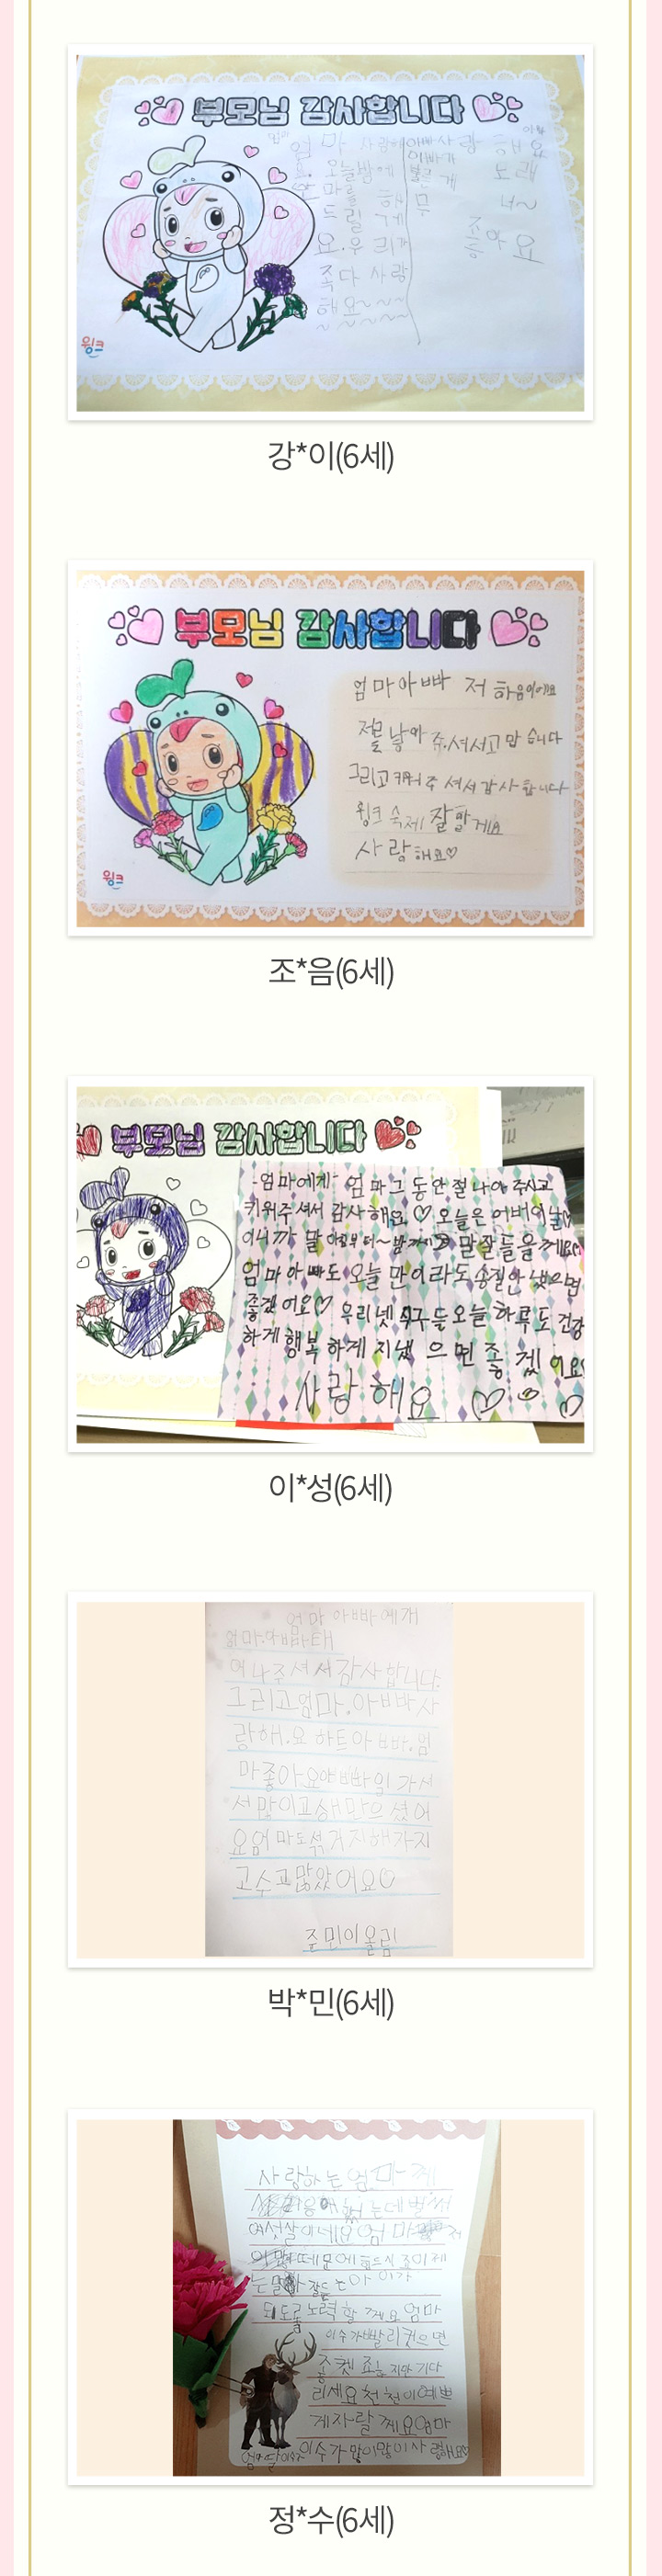 부모님 감사합니다
엄마 사랑해
오늘밤에
해
드릴게
요. 우리가
족 다 사랑
해요~~~~
아빠 사랑해요
아빠가
노래
불
게
너~
무
좋아요
윙크
강*이(6세)
부모님 감사합니다
엄마아빠 저 하음이에요
저를 낳아 주셔서고맙습니다
그리고키워주셔서감사합니다
윙크숙제 잘할게요
사랑해요♡
윙크
조*음(6세)
부모님 감사합니다
-엄마에게- 엄마 그동안 절 나아 주시고
키워주셔서 감사해요♡ 오늘은 어버이날
이니까 말 더~ 말잘들을께요
엄마아빠도 오늘 만이라도 송질안냈으면
좋겠어요♡ 우리넷식구들오늘하루도건강
하게 행복하게 지냈으면 좋겠어요
사랑해요♡
이*성(6세)
엄마아빠에개
엄마.아빠
나주셔서감사합니다.
그리고엄마.아빠사
랑해.요 하트아빠.엄
마좋아요아빠일가서
서많이고생만으셨어
요엄마도설거지해가지
고수고많았어요♡
준민이올림
박*민(6세)
사랑하는 엄마께
는데벌써
여섯살이네요 엄마
때문에힘드시죠이제
는말 잘듣는아이가
되도록노력할께요엄마
이수가빨리컷으면
좋켓죠 지만기다
리세요천천이예쁘
게자랄께요엄마
이수가많이많이사랑해요♡
정*수(6세)